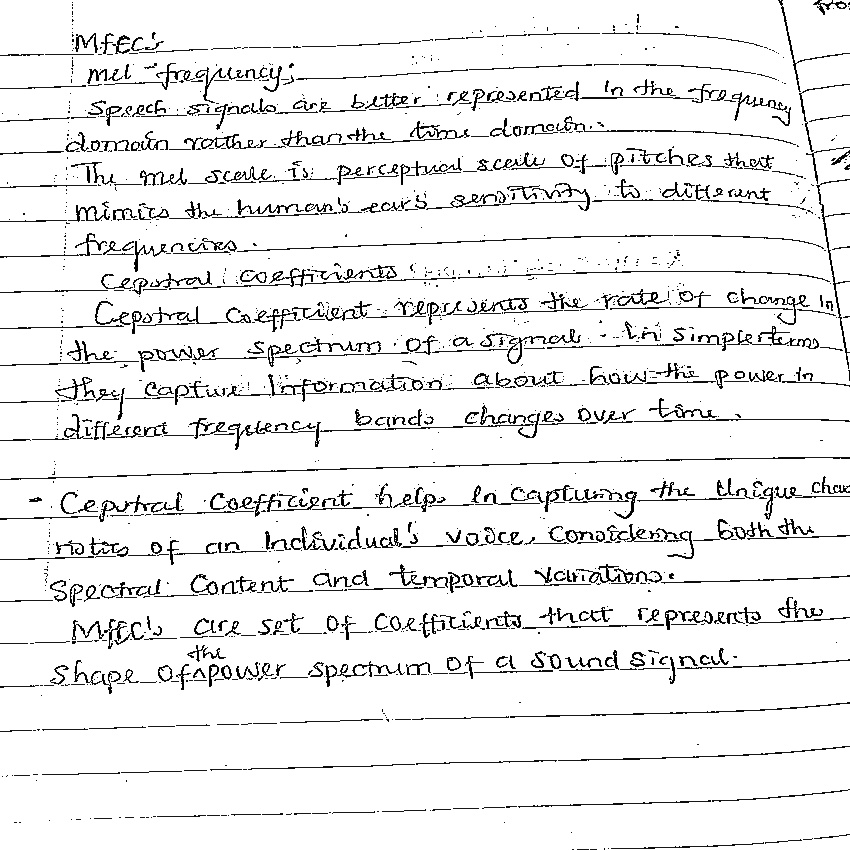 MFCC's
mel - frequency;
Speech signals are better represented in the frequency
domain rather than the time domain.
The mel scale is perceptual scale of pitches that
mimics the human's ear's sensitivity to different
frequencies.
Cepstral coefficients
Cepstral coefficient represents the rate of change in
the power spectrum of a signal. In simpler terms
they capture information about how the power in
different frequency bands changes over time.
- Cepstral Coefficient help in capturing the unique charac
ristics of an individual's voice, considering both the
spectral content and temporal variations.
MFCC's are set of coefficients that represents the
shape of the power spectrum of a sound signal.